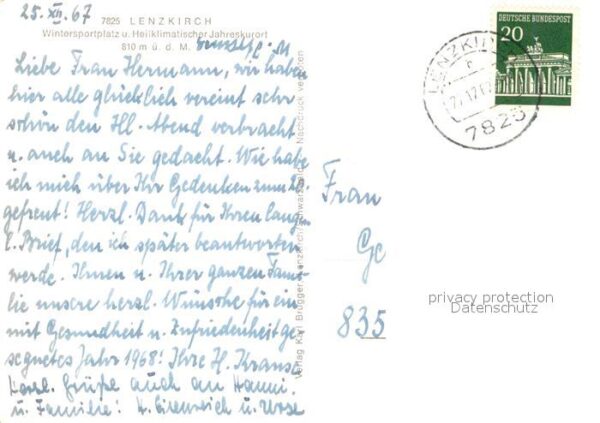 25. XII. 67
7825 LENZKIRCH
Wintersportplatz u. Heilklimatischer Jahreskurort
810 m ü. d. M.
Liebe Frau Hermann, wir haben
hier alle glücklich vereint sehr
schön den Hl. Abend verbracht
u. auch an Sie gedacht. Wie habe
ich mich über Ihr Gedenken zum 20.
gefreut! Herzl. Dank für Ihren lang
l. Brief, den ich später beantworten
werde. Ihnen u. Ihrer ganzen Fami-
lie unsere herzl. Wünsche für ein
mit Gesundheit u. Zufriedenheit ge-
segnetes Jahr 1968! Ihre H. Kranse
Herzl. Grüße auch an Hanni
u. Familie!
Verlag Karl Brugger, Lenzkirch/Schwarzwald Nachdruck verboten
DEUTSCHE BUNDESPOST
20
LENZKIRCH
7825
Frau
Ge
835
privacy protection
Datenschutz